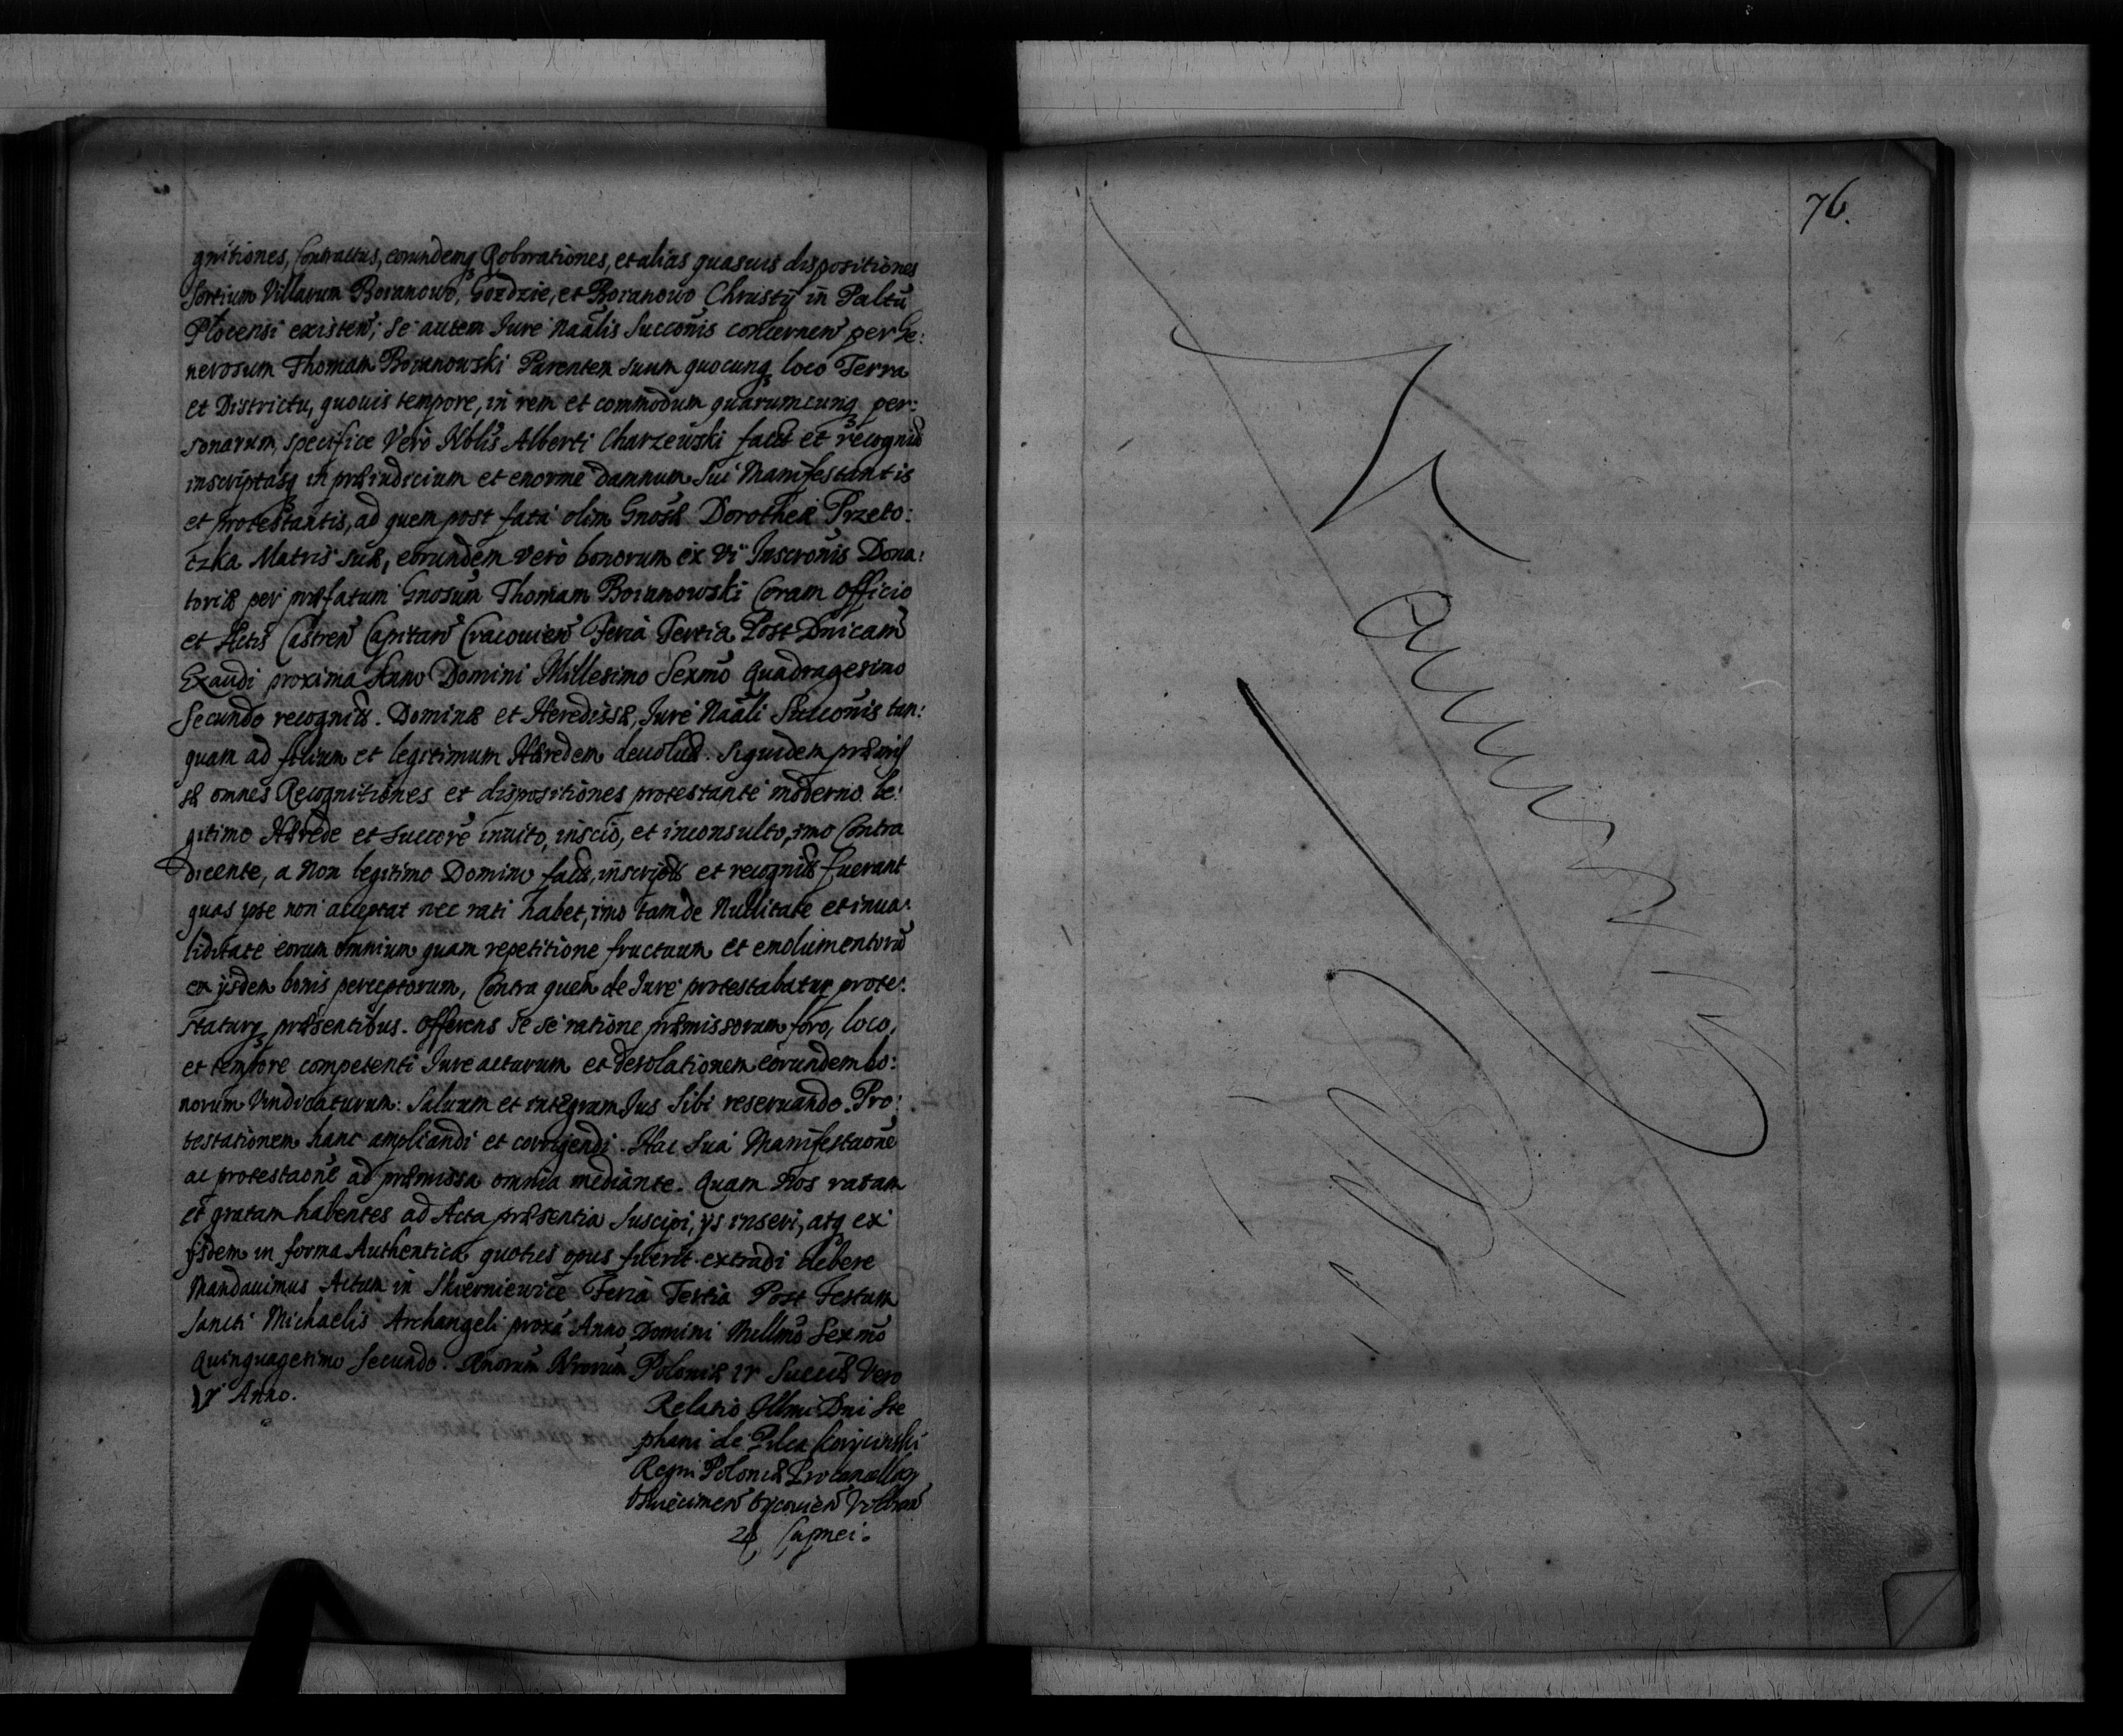 gnitiones, Contractus, eorundemq₃ Roborationes, et alias quasuis dispositiones
Sortium Villarum Boranowo, Gozdzie, et Boranowo Chrusty in Paltū
Plocensi existen̄; Se autem Jure Naālis Succōnis concernen̄ per Ge:
nerosum Thomam Boranowski Parentem suum quocunq₃ loco Terra
et Districtu, quouis tempore, in rem et commodum quarumcunq₃ per:
sonarum, specifice Vero Nblis Alberti Charzewski fact et recognit
inscriptasq₃ in præiudicium et enorme damnum Sui Manifestantis
et protestantis, ad quem post fata olim Gnosæ Dorotheæ Przeto:
czka Matris suæ, eorundem vero bonorum ex Vi Inscrōnis Dona:
toriæ per præfatum Gnosum Thomam Boianowski Coram Officio
et Actis Castren̄ Capitan̄ Cracouien̄ Feria Tertia Post Dnicam
Exaudi proxima Anno Domini Millesimo Sexmō Quadragesimo
Secundo recognitæ. Dominæ et Heredissæ, Jure Naāli Succōnis tan:
quam ad filium et legitimum Hæredem deuolut. Siquidem præmis
sæ omnes Recognitiones et dispositiones protestante moderno le:
gitimo Hærede et Succōre inuito, inscio, et inconsulto, imo Contra
dicente, a Non legitimo Domino factæ, inscriptæ et recognitæ fuerant
quas ipse non acceptat nec rati habet, imo tam de Nullitate et inua:
liditate eorum omnium quam repetitione fructuum et emolumentorū
ex ijsdem bonis perceptorum, Contra quem de Jure protestabatur prote:
staturq₃ præsentibus. Offerens Se se ratione præmissorum foro, loco,
et tempore competenti Jure acturum et desolationem eorundem bo:
norum Vindicaturum: Saluum et integrum Jus Sibi reseruando. Pro:
testationem hanc ampliandi et corrigendi. Hac Sua Manifestaōne
ac protestaōne ad præmissa omnia mediante. Quam Nos ratam
et gratam habentes ad Acta præsentia Suscipi, ijs inseri, atq₃ ex
ijsdem in forma Authentica quoties opus fuerit extradi debere
Mandauimus Actum in Skierniewice Feria Tertia Post Festum
Sancti Michaelis Archangeli proxa Anno Domini Millmō Sexmō
Quinquagesimo Secundo. Rnorum Nrorum Poloniæ IV Sueciæ Vero
V Anno.
Relatio Illmi Dni Ste
phani de Pilca Korycinski
Regni Poloniæ Procancellary
Oswiecimen̄ Oycouien̄
Capnei.
76.